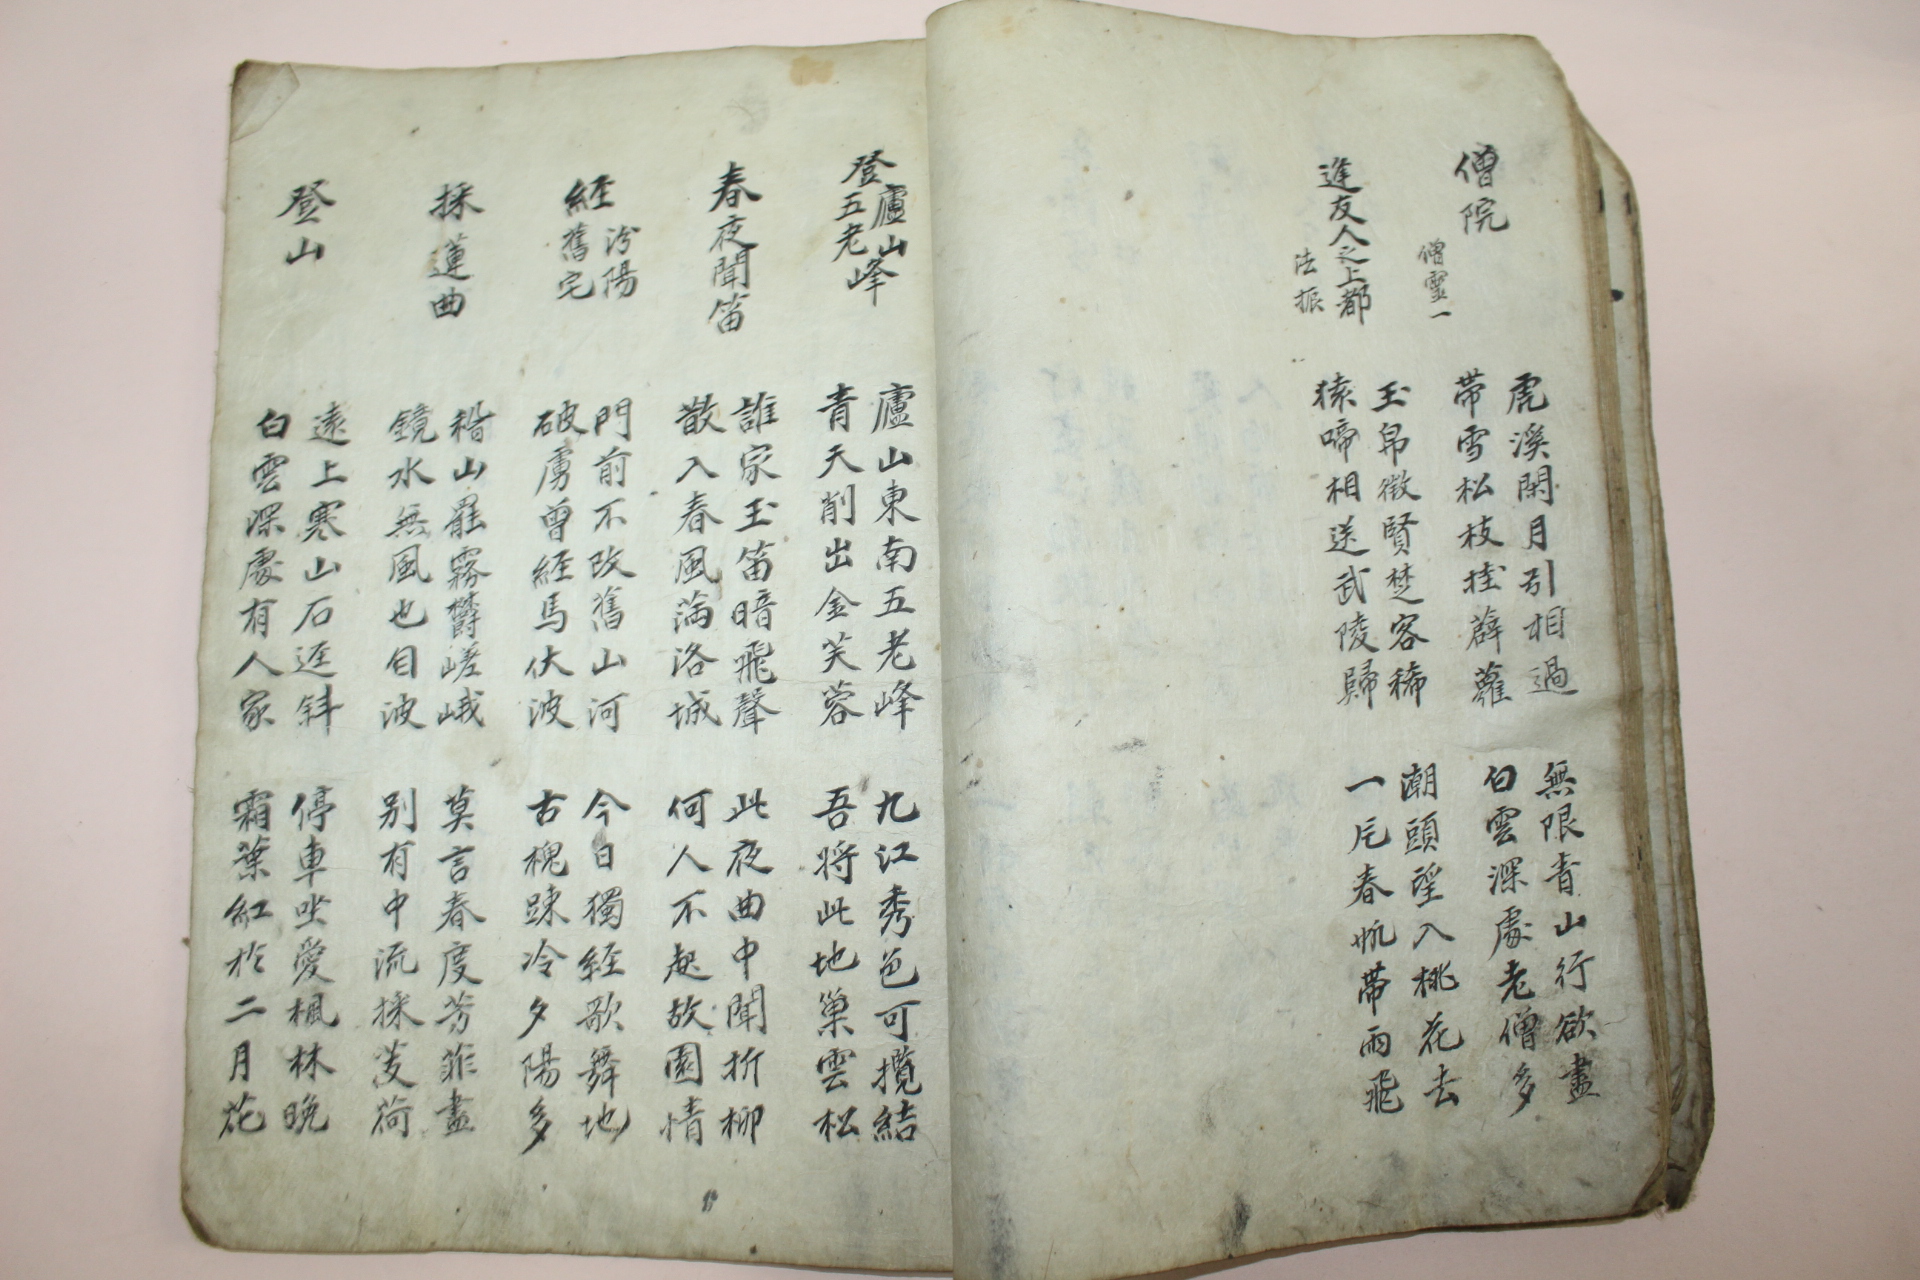 僧院
僧靈一
虎溪閑月引相過
帶雪松枝掛薜蘿
無限青山行欲盡
白雲深處老僧多
逢友人之上都
法振
玉帛徵賢楚客稀
猿啼相送武陵歸
潮頭望入桃花去
一片春帆帶雨飛
登廬山
五老峰
廬山東南五老峰
青天削出金芙蓉
九江秀色可攬結
吾將此地巢雲松
春夜聞笛
誰家玉笛暗飛聲
散入春風滿洛城
此夜曲中聞折柳
何人不起故園情
經汾陽
舊宅
門前不改舊山河
破虜曾經馬伏波
今日獨經歌舞地
古槐踈冷夕陽多
採蓮曲
稽山罷霧鬱嵯峨
鏡水無風也自波
莫言春度芳菲盡
別有中流採芰荷
登山
遠上寒山石逕斜
白雲深處有人家
停車坐愛楓林晚
霜葉紅於二月花